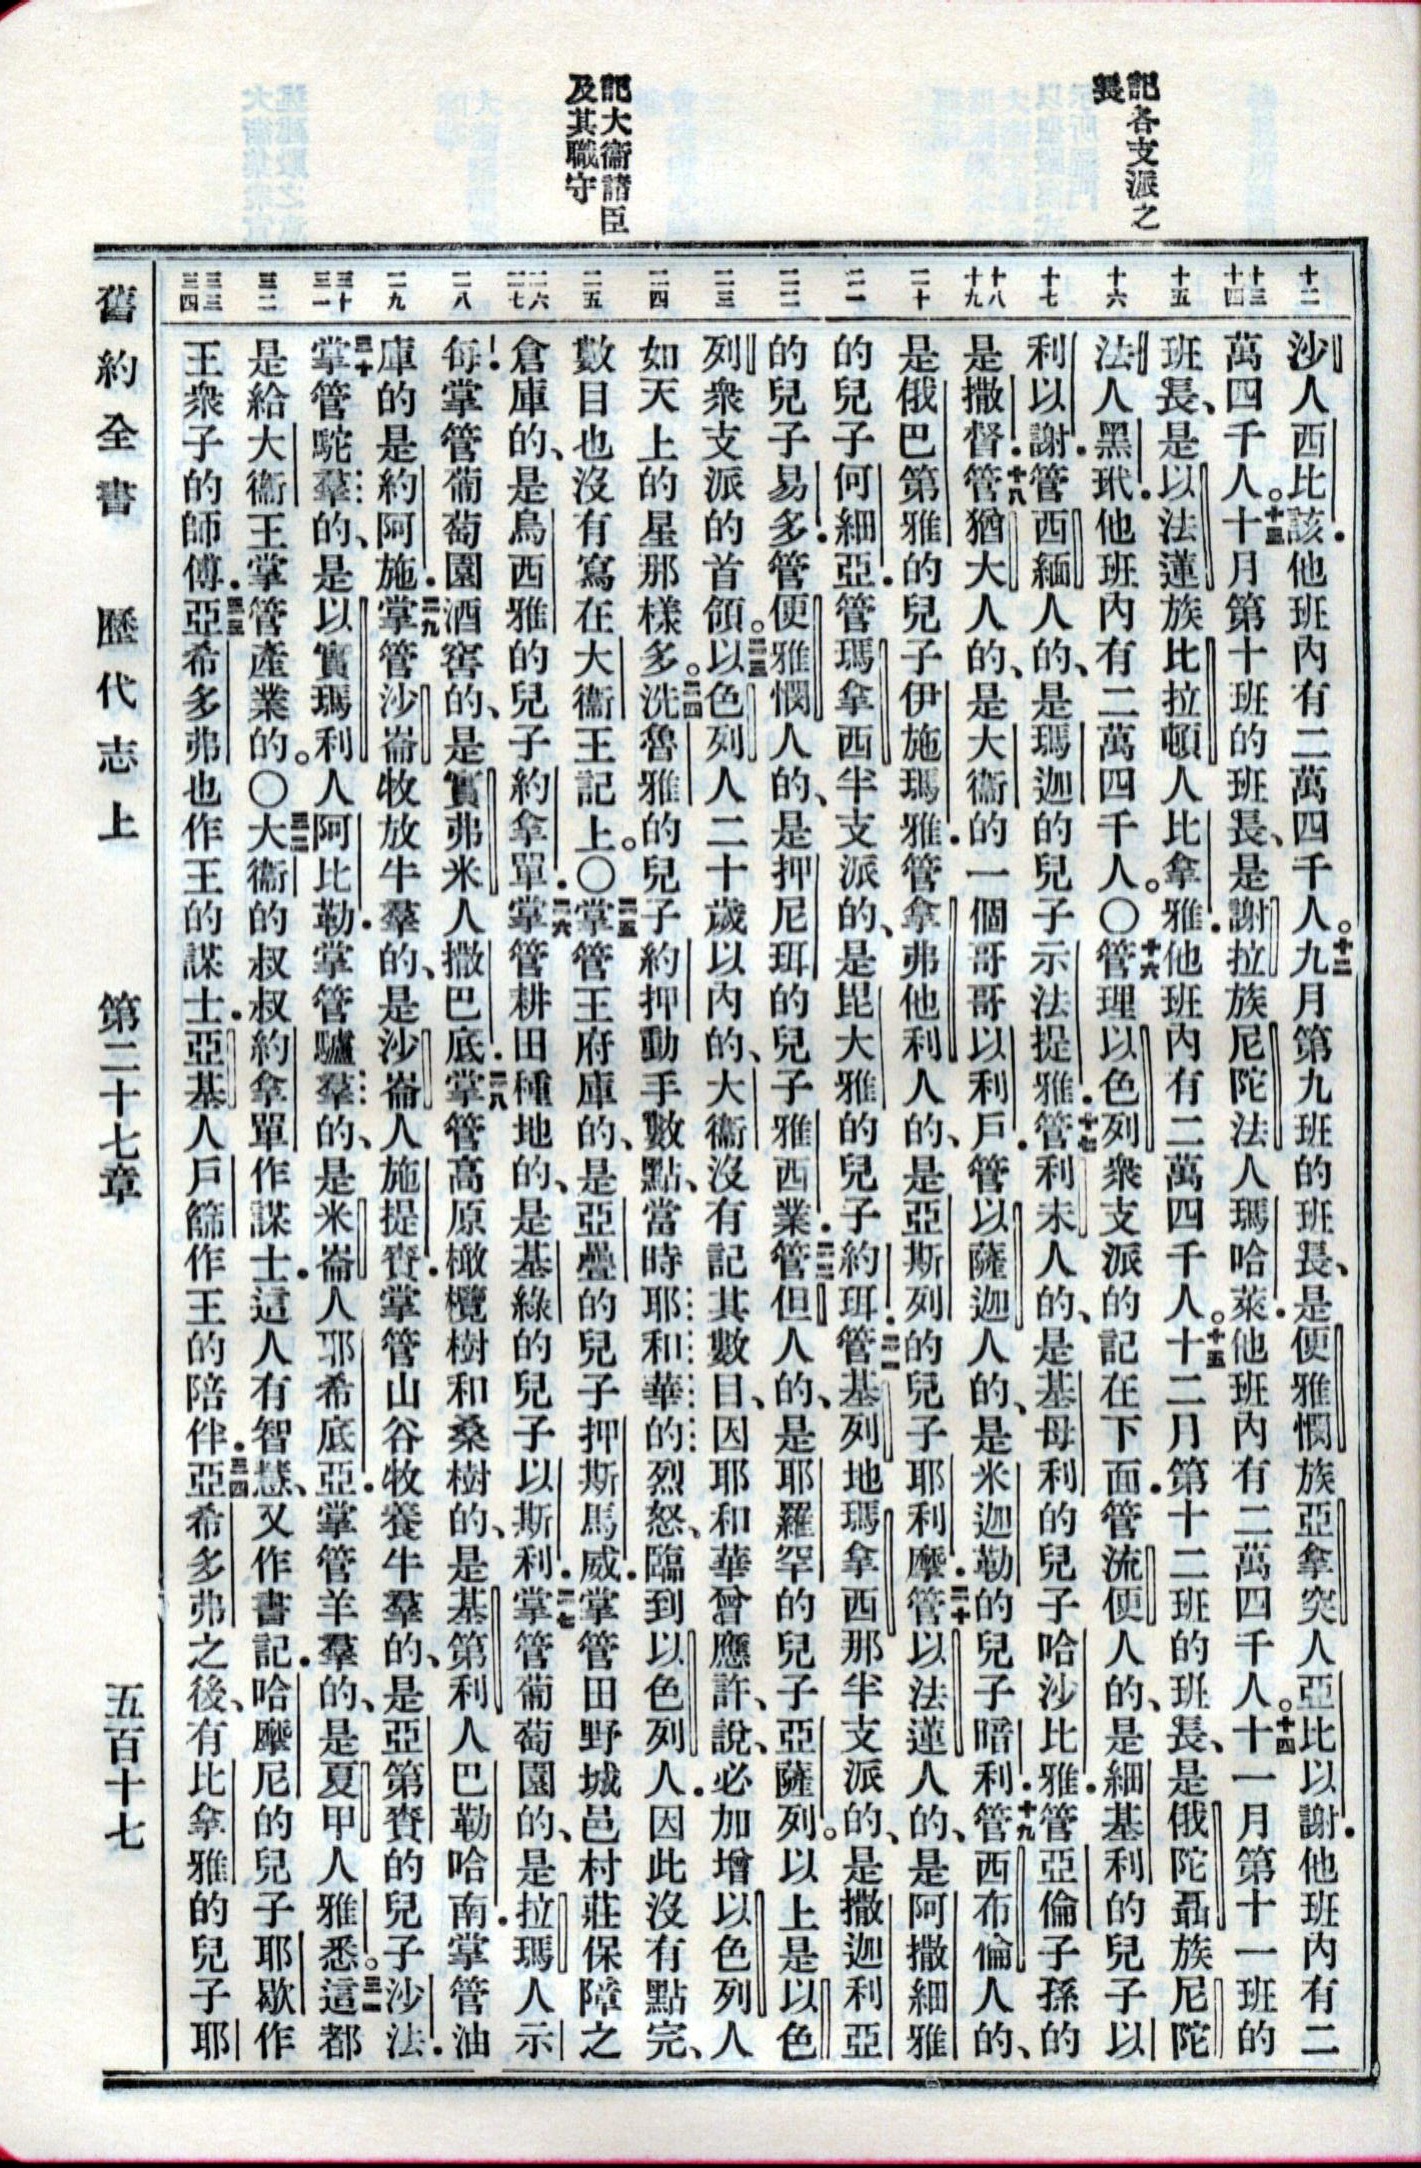 記各支派之
長
記大衞諸臣
及其職守
十二
十三
十四
十五
十六
十七
十八
十九
二十
二一
二二
二三
二四
二五
二六
二七
二八
二九
三十
三一
三二
三三
三四
沙人西比該.他班內有二萬四千人。十二九月第九班的班長、是便雅憫族亞拿突人亞比以謝.他班內有二
萬四千人。十三十月第十班的班長、是謝拉族尼陀法人瑪哈萊.他班內有二萬四千人。十四十一月第十一班的
班長、是以法蓮族比拉頓人比拿雅.他班內有二萬四千人。十五十二月第十二班的班長、是俄陀聶族尼陀
法人黑玳.他班內有二萬四千人。〇十六管理以色列衆支派的記在下面.管流便人的、是細基利的兒子以
利以謝.管西緬人的、是瑪迦的兒子示法提雅.十七管利未人的、是基母利的兒子哈沙比雅.管亞倫子孫的
是撒督.十八管猶大人的、是大衞的一個哥哥以利戶.管以薩迦人的、是米迦勒的兒子暗利.十九管西布倫人的、
是俄巴第雅的兒子伊施瑪雅.管拿弗他利人的、是亞斯列的兒子耶利摩.二十管以法蓮人的、是阿撒細雅
的兒子何細亞.管瑪拿西半支派的、是毘大雅的兒子約珥.二一管基列地瑪拿西那半支派的、是撒迦利亞
的兒子易多.管便雅憫人的、是押尼珥的兒子雅西業.二二管但人的、是耶羅罕的兒子亞薩列。以上是以色
列衆支派的首領。二三以色列人二十歲以內的、大衞沒有記其數目、因耶和華曾應許、說、必加增以色列人
如天上的星那樣多。二四洗魯雅的兒子約押動手數點、當時耶和華的烈怒、臨到以色列人.因此沒有點完、
數目也沒有寫在大衞王記上。〇二五掌管王府庫的、是亞疊的兒子押斯馬威.掌管田野城邑村莊保障之
倉庫的、是烏西雅的兒子約拿單.二六掌管耕田種地的、是基綠的兒子以斯利.二七掌管葡萄園的、是拉瑪人示
每.掌管葡萄園酒窖的、是實弗米人撒巴底.二八掌管高原橄欖樹和桑樹的、是基第利人巴勒哈南.掌管油
庫的是約阿施.二九掌管沙崙牧放牛羣的、是沙崙人施提賚.掌管山谷牧養牛羣的、是亞第賚的兒子沙法.
三十掌管駝羣的、是以實瑪利人阿比勒.掌管驢羣的、是米崙人耶希底亞.掌管羊羣的、是夏甲人雅悉。三一這都
是給大衞王掌管產業的。〇三二大衞的叔叔約拿單作謀士.這人有智慧、又作書記.哈摩尼的兒子耶歇作
王衆子的師傅.三三亞希多弗也作王的謀士.亞基人戶篩作王的陪伴.三四亞希多弗之後、有比拿雅的兒子耶
舊約全書 歷代志上 第二十七章 五百十七